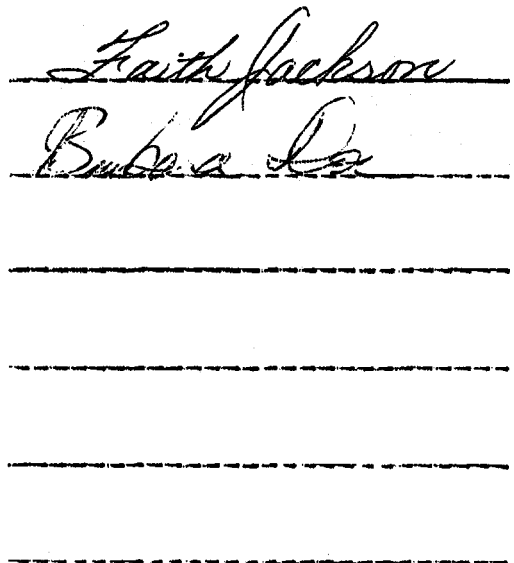 Faith Jackson
Barbara